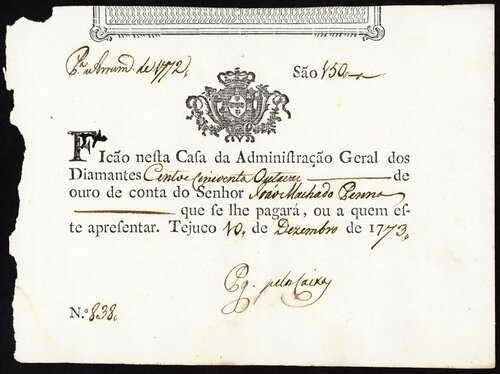 Pª a Arremd. de 1772,
São 150
Ficão neſta Caſa da Adminiſtração Geral dos
Diamantes Cento e Cincoenta Oytavas de
ouro de conta do Senhor João Machado Penna
que ſe lhe pagará, ou a quem eſ-
te apreſentar. Tejuco 10. de Dezembro de 1773.
Pg. pela Caixa
N.º 838,